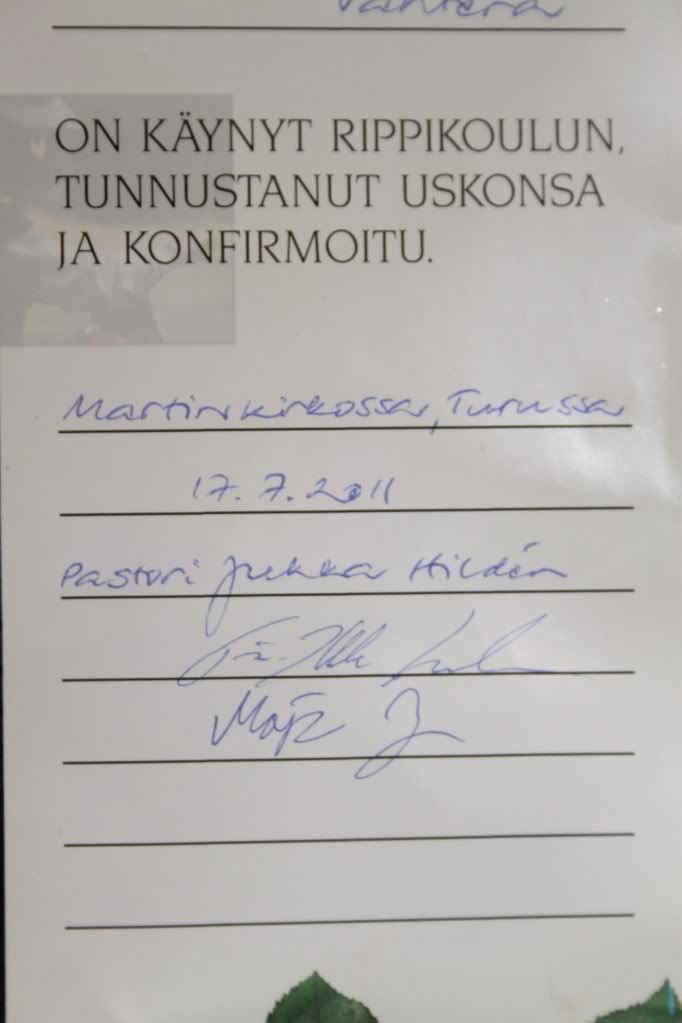 Vahtera
ON KÄYNYT RIPPIKOULUN,
TUNNUSTANUT USKONSA
JA KONFIRMOITU.
Martinkirkossa, Turussa
17.7.2011
Pastori Jukka Hildén